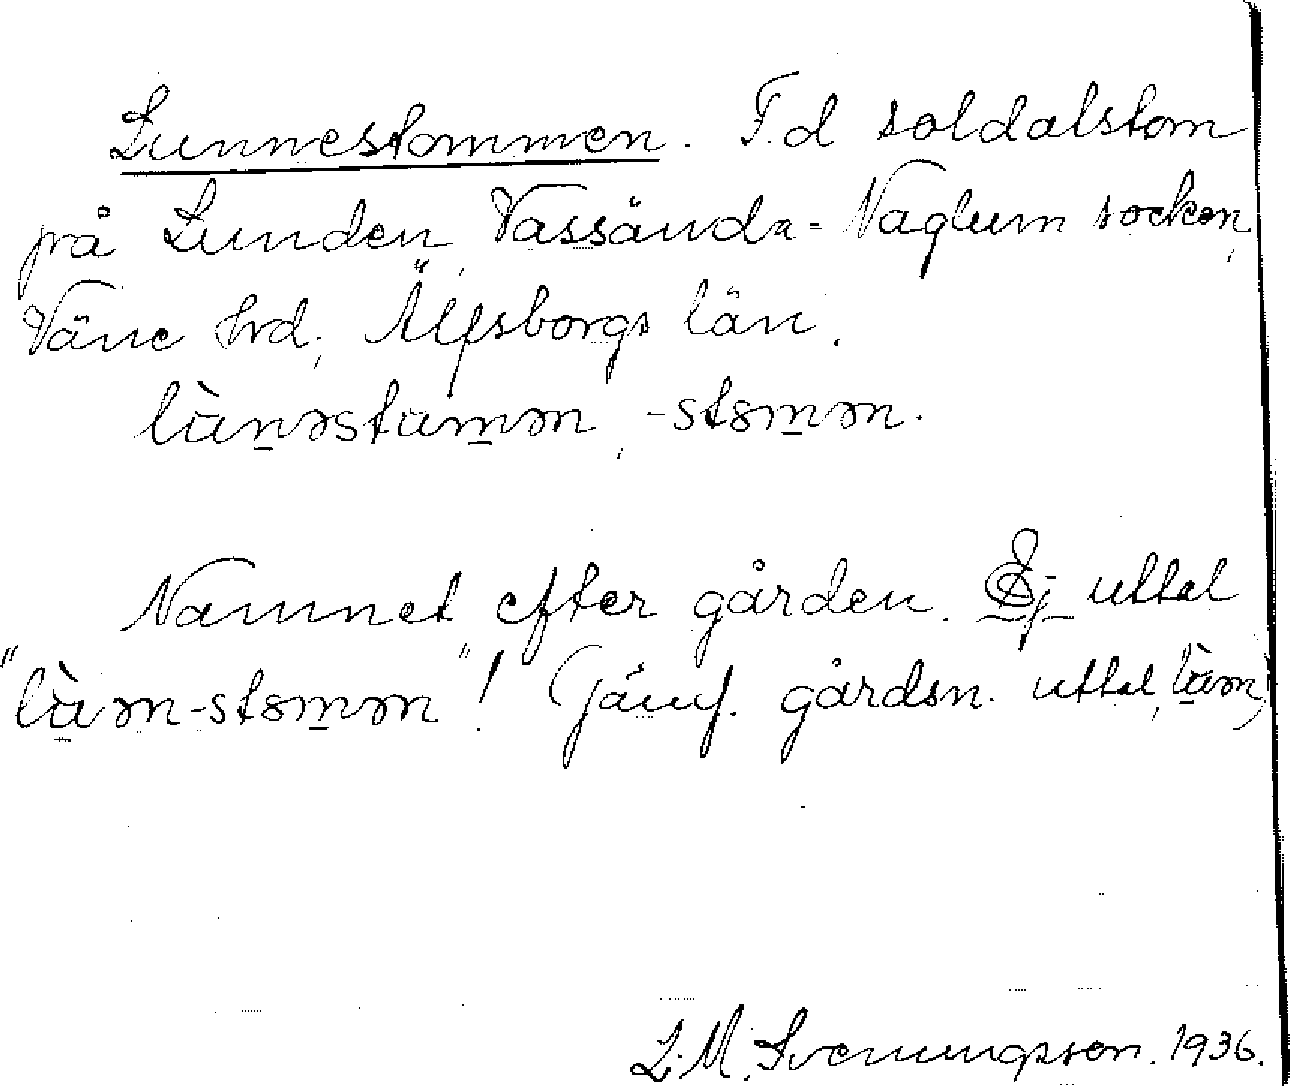 Lunnestommen. F.d soldatstom
på Lunden, Vassända-Naglum socken,
Väne hrd, Älfsborgs län.
lùn̲əstum̲ən, -stɞm̲ən.
Namnet efter gården. Ej uttal
"lùən-stɞm̲ən"! (Jämf. gårdsn. uttal, lùən)
L.M. Svenungsson. 1936.